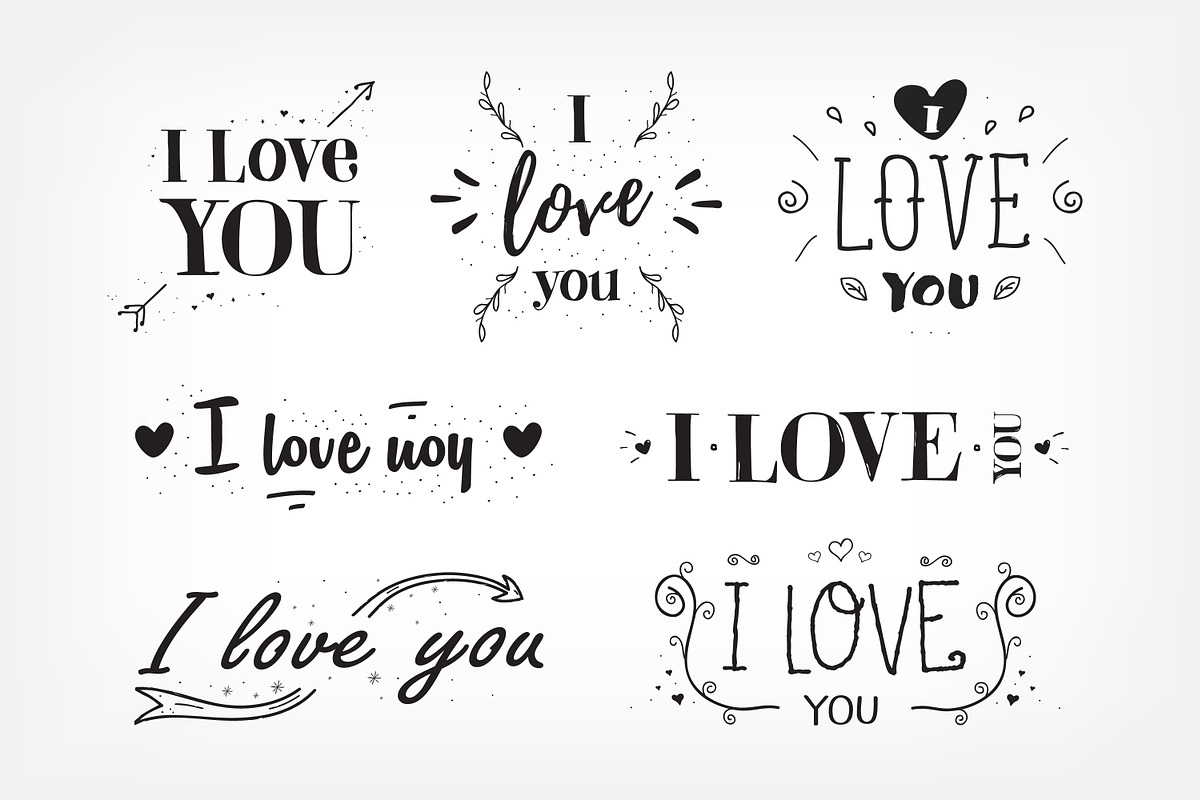 I Love
YOU
I
love
you
I
LOVE
YOU
I love uoy
I · LOVE · YOU
I love you
I LOVE
YOU